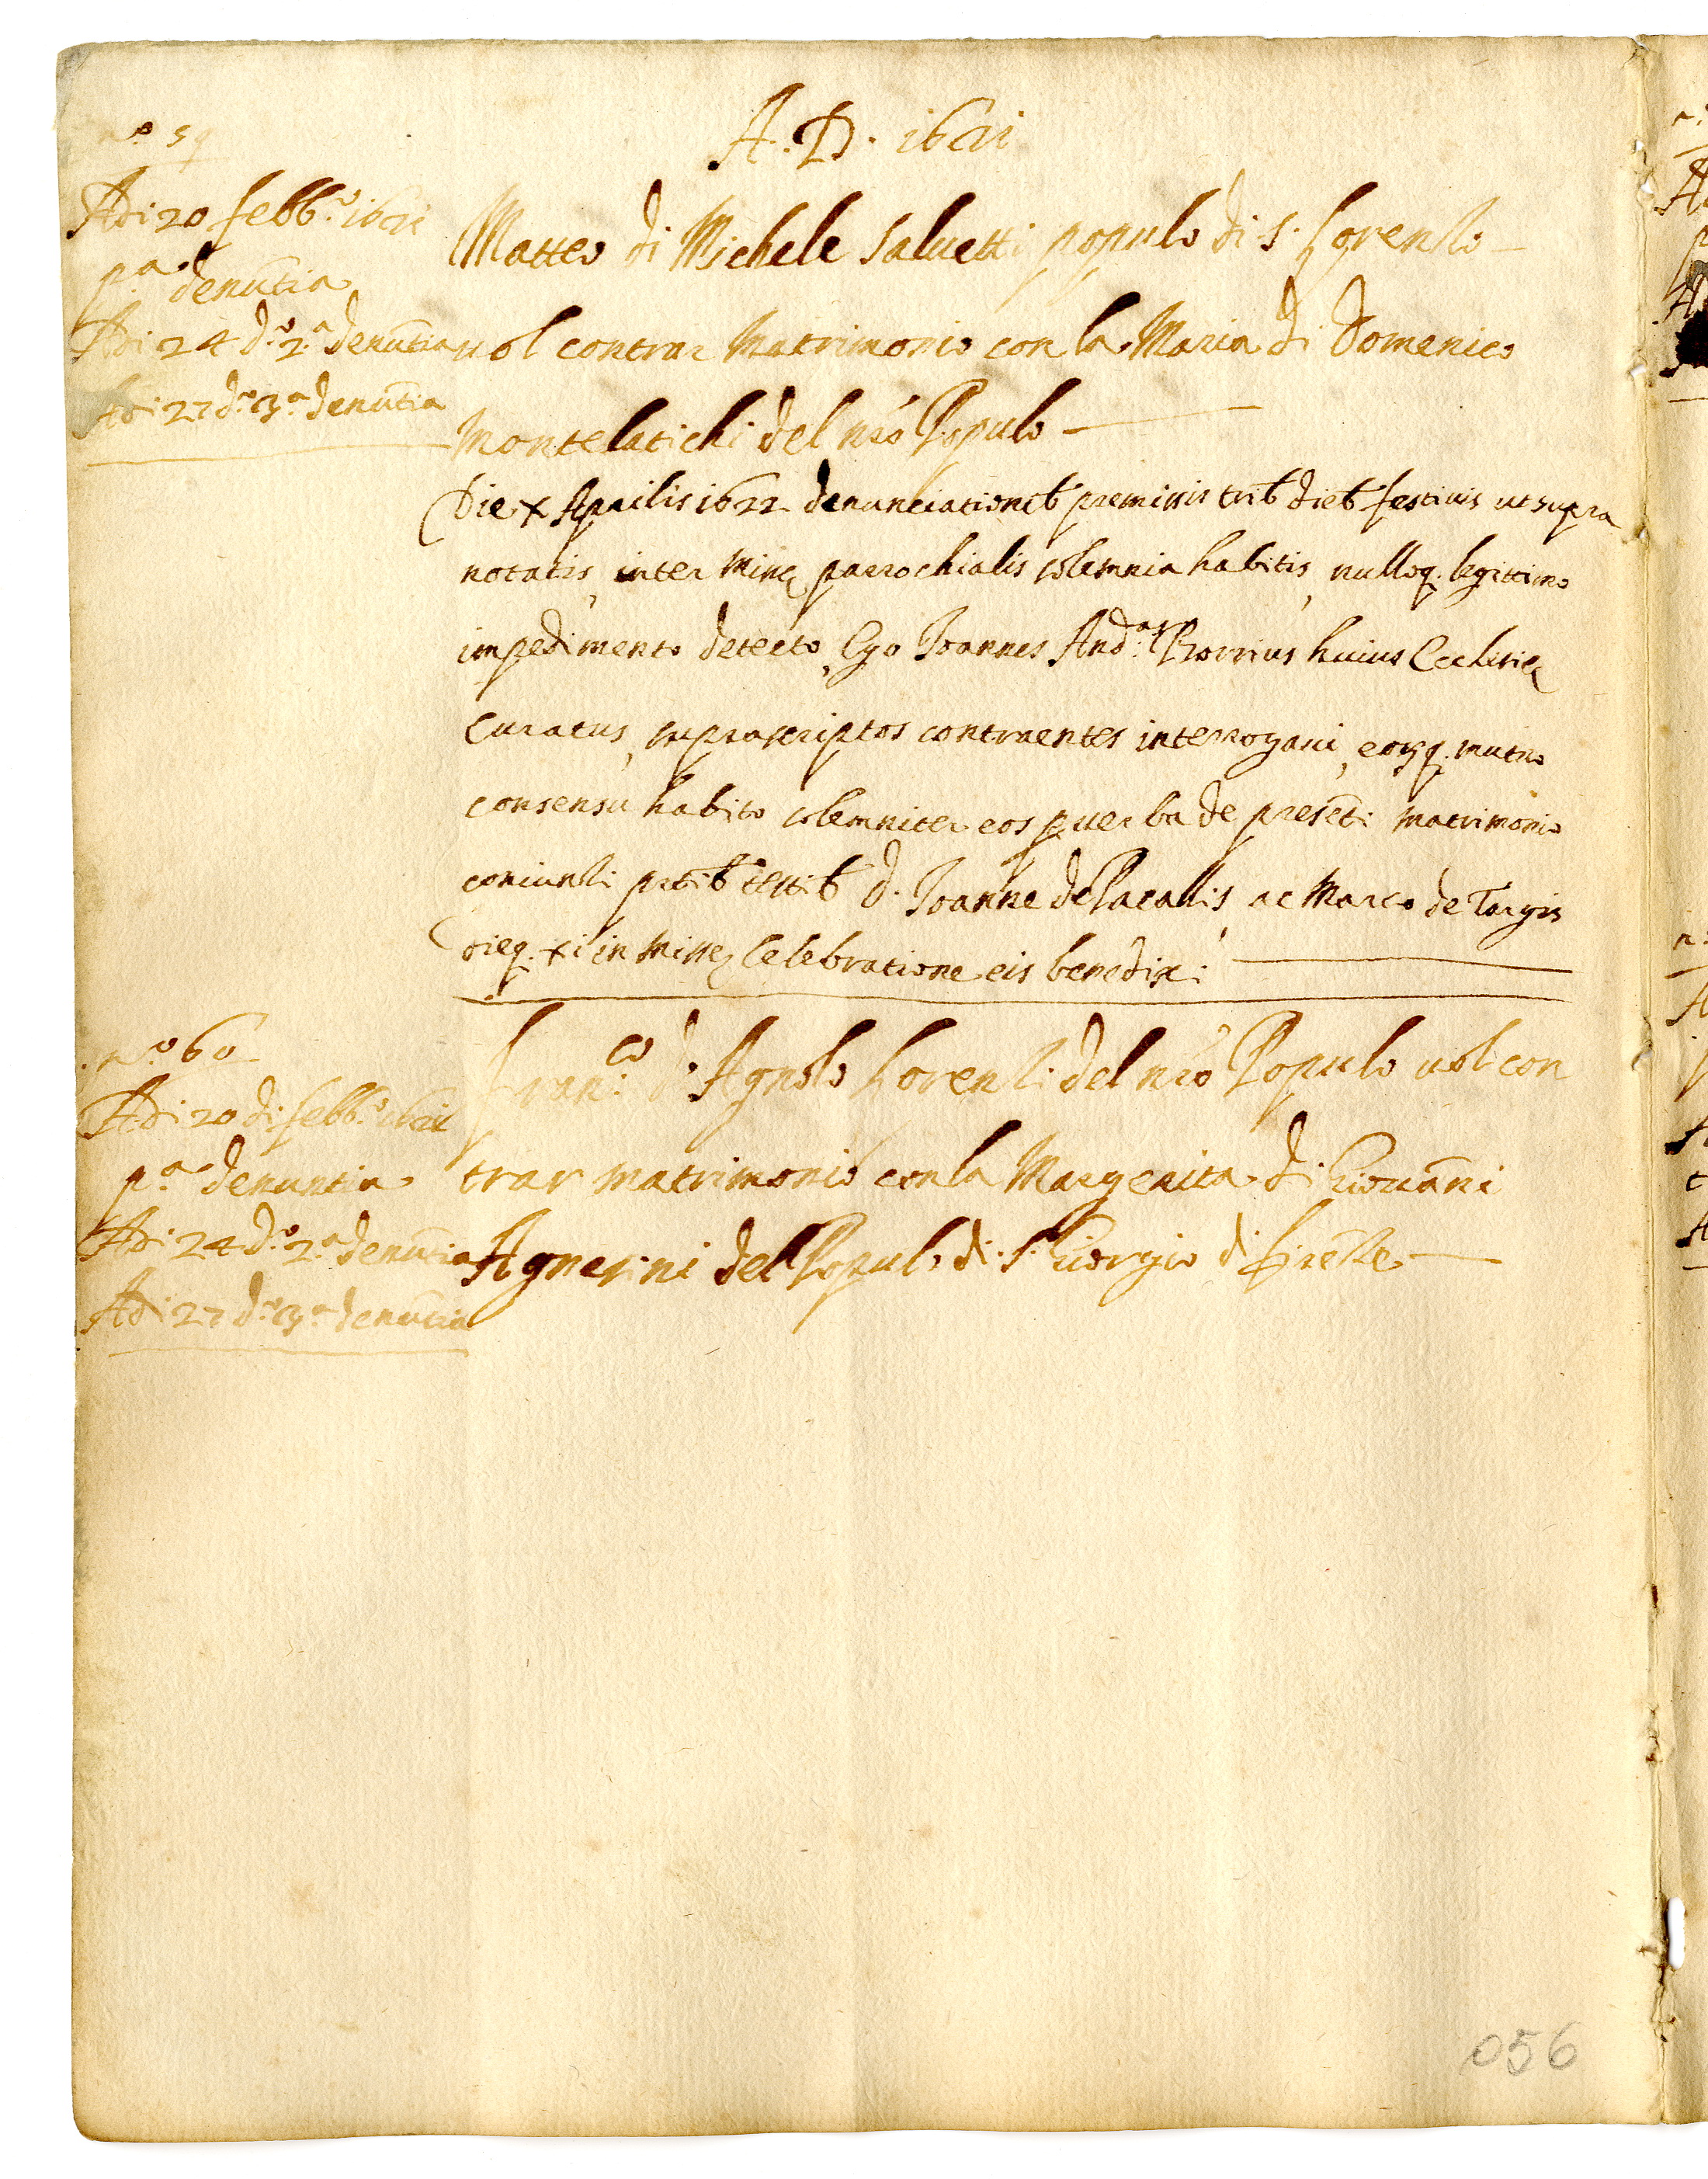 A. D. 1621
nº 59
Adi 20 febb.º 1621
p.ª denūtia
Adi 24 d.º 2.ª denūtia
Adi 27 d.º 3.ª denūtia
Matteo di Michele Saluetti populo di S. Lorenzo
uol contrar Matrimonio con la Maria di Domenico
Montelatichi del nrō Populo
Die x Aprilis 1622 denunciationib premissis trib dieb festiuis ut supra
notatis, inter Missę parrochialis solemnia habitis, nulloq. legittimo
impedimento detecto, Ego Joannes And.as Borrius huius Ecclesię
Curatus, suprascriptos contraentes interrogaui, eorq. mutuo
consensu habito solemniter eos p uerba de presēti matrimonio
coniunsi pntib testib D. Joanne de Pacallis, ac Marco de Targis
dieq. xi in Missę Celebratione eis benedixi.
nº 60
Adi 20 di febb.º 1621
p.ª denuntia
Adi 24 d.º 2.ª denūtia
Adi 27 d.º 3.ª denūtia
Fran.co d'Agnolo Lorenzi del nrō Populo uol con
trar matrimonio con la Margerita di Giouāni
Agnerini del Populo di S. Giorgio di Firēze
056